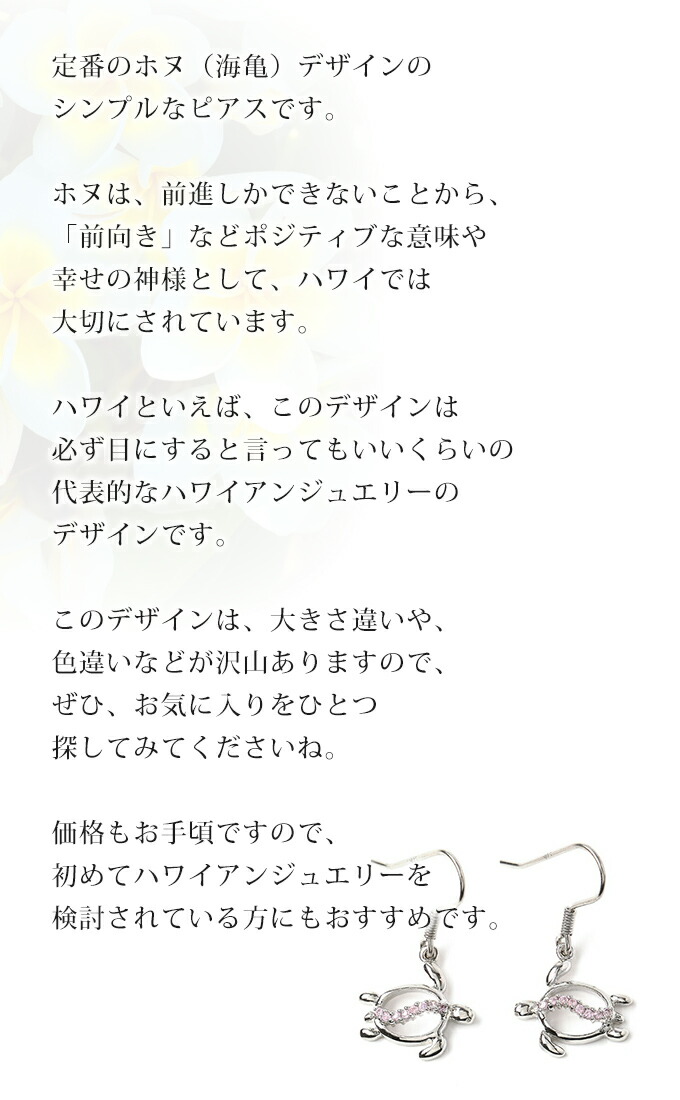 定番のホヌ（海亀）デザインの
シンプルなピアスです。
ホヌは、前進しかできないことから、
「前向き」などポジティブな意味や
幸せの神様として、ハワイでは
大切にされています。
ハワイといえば、このデザインは
必ず目にすると言ってもいいくらいの
代表的なハワイアンジュエリーの
デザインです。
このデザインは、大きさ違いや、
色違いなどが沢山ありますので、
ぜひ、お気に入りをひとつ
探してみてくださいね。
価格もお手頃ですので、
初めてハワイアンジュエリーを
検討されている方にもおすすめです。